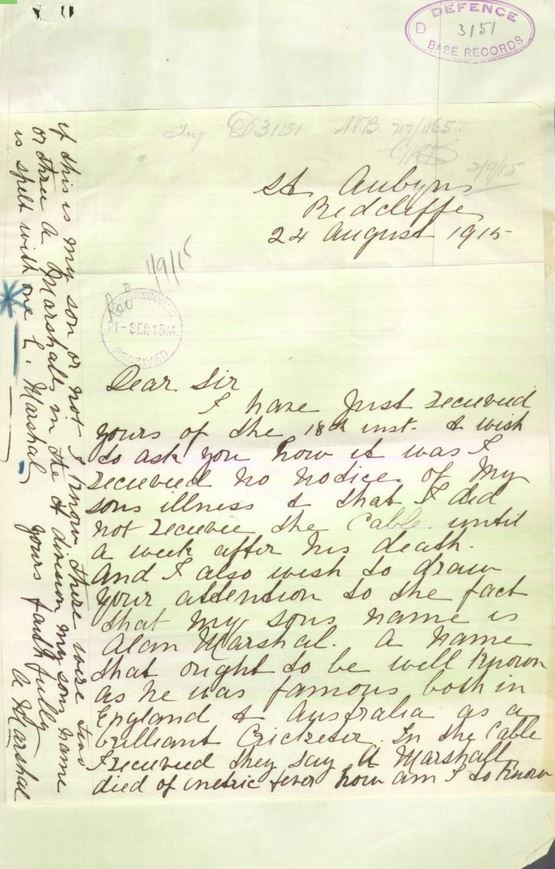 DEFENCE
D 3151
BASE RECORDS
D3151
2/9/15
St Aubyns
Redcliffe
24 August 1915
Recd 1/9/15
1-SEP.15
RECEIVED
Dear Sir
I have just recieved
yours of the 18th inst. & wish
to ask you how it was I
recieved no nodice of my
sons illness & that I did
not recieve the Cable until
a week after his death.
And I also wish to draw
your attention to the fact
that my sons name is
Alan Marshal. A name
that ought to be well known
as he was famous both in
England & Australia as a
brilliant Cricketer. In the Cable
I recieved they say A Marshall
died of enteric fever how am I to know
if this is my son or not I know there were two
or three A Marshalls in the A division my sons name
is spelt with one L. Marshal
yours faithfully
A Marshal